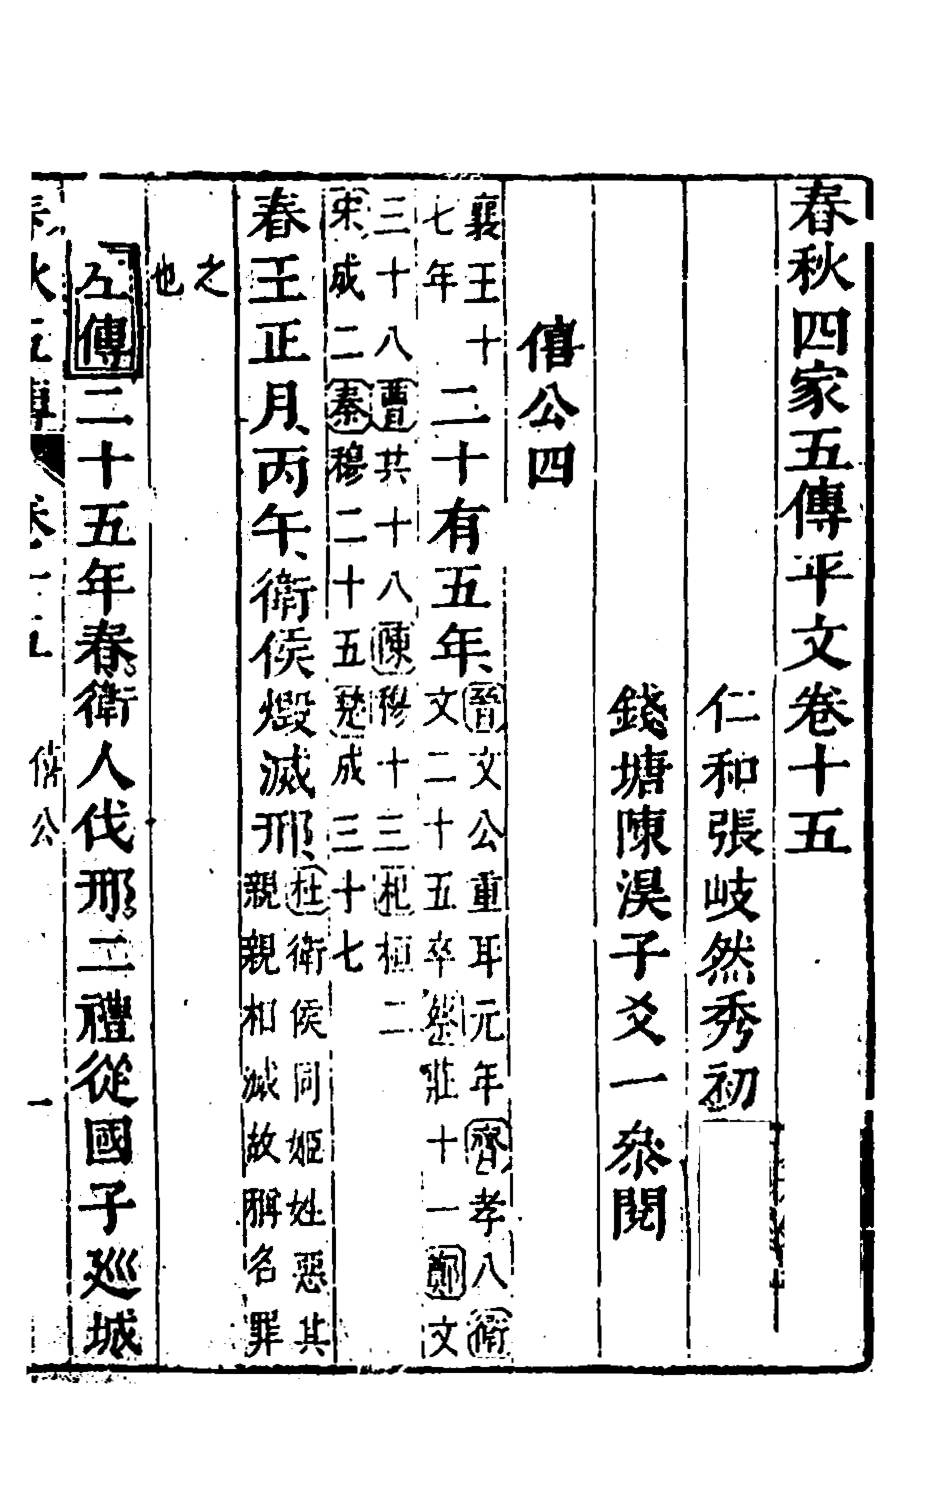 春秋四家五傳平文卷十五
仁和張岐然秀初
錢塘陳淏子爻一叅閱
僖公四
襄王十
七年
二十有五年、
晉文公重耳元年齊孝八衛
文二十五卒蔡莊十一鄭文
三十八曹共十八陳穆十三杞桓二
宋成二秦穆二十五楚成三十七
春王正月、丙午、衛侯燬滅邢、
杜衛侯同姬姓惡其
親親相滅故稱名罪
之
也
左傳二十五年春衛人伐邢二禮從國子廵城
春秋五傳 卷十五 僖公 一